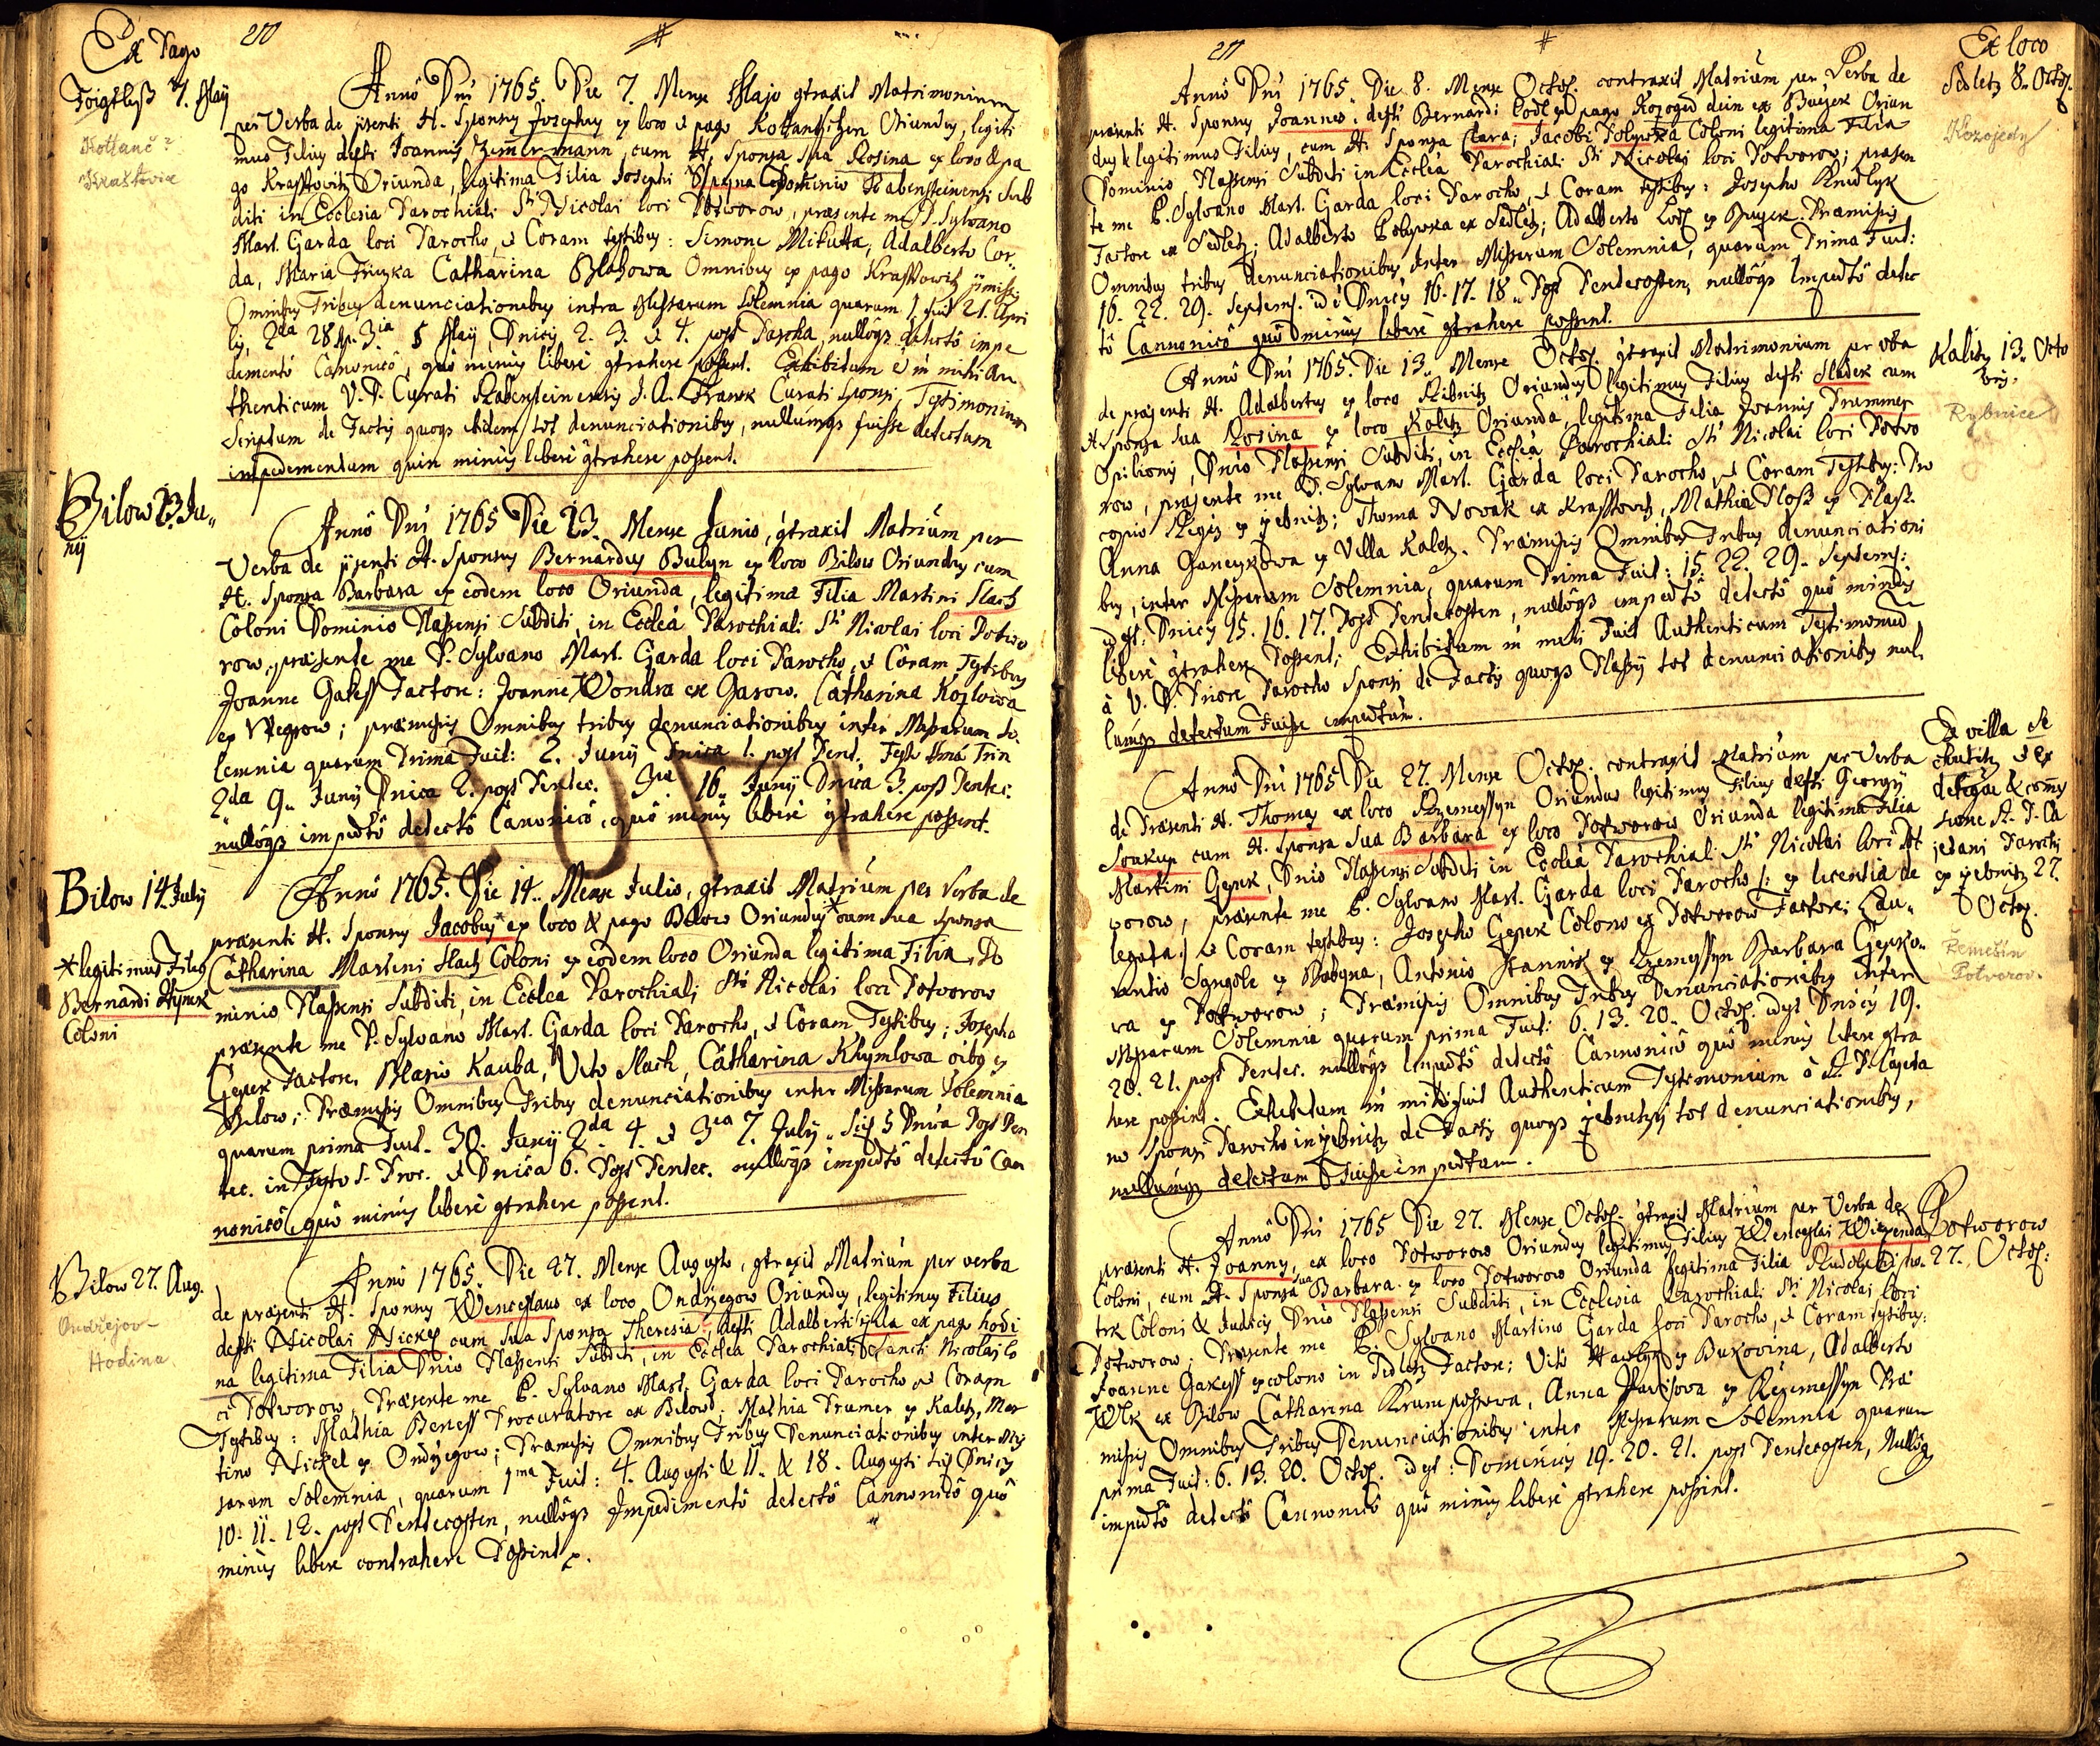 210
Ex Pago
7. Maij
Kottanč ?
Kraštovice
Anno Dni 1765. Die 7. Mense Majo gtraxit Matrimonium
per Verba de pjsenti H. Sponsus Josephus ex loco & pago Kottantschen Oriundus, legiti
mus Filius defti Joannis Zimermann, cum H. Sponsa sua Rosina ex loco & pa
go Krasstowitz Oriunda, legitima Filia Josephi Dominio Rabensteinensi Sub
diti in Ecclesia Parochiali Sti Nicolai loci Potworow, praesente me P. Sylvano
Mart. Garda loci Parocho, & Coram testibus: Simone Mikutta, Adalberto Cor
da, Maria Catharina Blahowa Omnibus ex pago Krasstowitz pmissis
Omnibus Tribus denunciationibus intra Missarum Solemnia quarum 1. fuit 21. Apri
lis, 2da 28 Ap. 3ia 5 Maij, Dnicis 2. 3. & 4. post Pascha, nullôqs detectô impe
dimentô Canonicô, quô minus liberè gtrahere possent. Exhibitum è in mihi Au
thenticum V. P. Curati Rabensteinensis J. A. Frank Curati Sponsi, Testimonium
Scriptum de Factis quoqs ibidem tot denunciationibus, nullumqs fuisse detectum
impedimentum quin minus liberè gtrahere possent.
Bilow 23. Ju„
nij
Annô Dni 1765 Die 23. Mense Junio, gtraxit Matrium per
Verba de pjsenti H. Sponsus Bernardus Bulyn ex loco Bilow Oriundus cum
H. Sponsa Barbara ex eodem loco Oriunda, legitima Filia Martini Slach
Coloni Dominio Plassensi Subditi, in Ecclea Parochiali Sti Nicolai loci Potwo
row, praesente me P. Sylvano Mart. Garda loci Parocho, & Coram Testibus
Joanne Gakess Factore: Joanne Wondra ex Garow. Catharina Kozlowa
ex Wegrow; praemissis Omnibus tribus denunciationibus inter Missarum So
lemnia quarum Prima Fuit: 2. Junij Dnica 1. post Pent. Festo Smae Trin
2da 9. Junij Dnica 2. post Pentec. 3ia 16. Junij Dnica 3. post Pentec.
nullôqs impedtô detectô Canonicô, quô minus liberè gtrahere possent.
Bilow 14. July
* legitimus Filius
Bernardi Hymk
Coloni
Annô 1765. Die 14. Mense Julio, gtraxit Matrium per Verba de
praesenti H. Sponsus Jacobus* ex loco & pago Bilow Oriundus* cum sua sponsa
Catharina Martini Slach Coloni ex eodem loco Oriunda legitima Filia, Do
minio Plassensi Subditi, in Ecclea Parochiali Sti Nicolai loci Potworow
praesente me P. Sylvano Mart. Garda loci Parocho, & Coram Testibus; Josepho
Gepek Factore, Blasio Kauba, Vito Slach, Catharina Khymlowa oibg ex
Bilow; Praemissis Omnibus Tribus denunciationibus inter Missarum Solemnia
quarum prima Fuit. 30. Junij 2da 4. & 3ia 7. July, scil 5 Dnica Post Pen
tec. in Festo S. Proc. & Dnica 6. Post Pentec. nullôqs impedtô detectô Can
nonicô, quô minus liberè gtrahere possent.
Bilow 27. Aug.
Ondřejov -
Hodina
Annô 1765. Die 27. Mense Augusto, gtraxit Matrium per verba
de praesenti H. Sponsus Wenceslaus ex loco Ondrzegow Oriundus, legitimus Filius
defti Nicolai Nickes cum sua Sponsa Theresia, defti Adalberti ex pago hodi
na legitima Filia Dnio Plassensi Subditi, in Ecclea Parochiali Sancti Nicolai lo
ci Potworow, Praesente me P. Sylvano Mart. Garda loci Parocho & Coram
Testibus: Mathia Beness Procuratore ex Bilow; Mathia Trumer ex Kaletz, Mar
tino Nickel ex Ondrzegow; Praemissis Omnibus Tribus Denunciationibus inter Mis
sarum Solemnia, quarum 1ma Fuit: 4. Augusti & 11. & 18. Augusti scil Dnicis
10. 11. 12. post Pentecosten, nullôqs Impedimentô detectô Cannonicô quô
minus liberè contrahere Possint.
211
Ex loco
Sedletz 8. Octob.
Kozojedy
Annô Dni 1765. Die 8. Mense Octob. contraxit Matrium per Verba de
praesenti H. Sponsus Joannes, defti Bernardi Lodl ex pago Kozoged dein ex Bugek Oriun
dus & legitimus Filius, cum H. Sponsa Clara; Jacobi Pobywka Coloni legitima Filia
Dominio Plassensi Subditi in Ecclea Parochiali Sti Nicolai loci Potworow; praesen
te me P. Sylvano Mart. Garda loci Parocho, & Coram testibus: Josepho Knedlyk
Factore ex Sedletz; Adalberto Pobywka ex Sedletz; Adalberto Lodl ex Bugek. Praemissis
Omnibus tribus denunciationibus Inter Missarum Solemnia, quarum Prima Fuit:
16. 22. 29. Septemb. id è Dnicis 16. 17. 18. Post Pentecosten, nullôqs Impedtô detec
tô Cannonicô quô minus liberè gtrahere possint.
Kaletz 13. Octo
bris.
Rybnice
Annô Dni 1765. Die 13. Mense Octob. gtraxit Matrimonium per vba
de praesenti H. Adalbertus ex loco Ribnitz Oriundus legitimus Filius defti Sladek cum
H. sponsa sua Rosina ex loco Kaletz Oriunda, legitima Filia Joannis Trummer
Opilionis, Dnio Plassensi Subditi, in Ecclea Parochiali Sti Nicolai loci Potwo
row, praesente me P. Sylvano Mart. Garda loci Parocho, & Coram Testibus: Pro
copio Regis ex Zebnitz; Thoma Novak ex Krasstowitz, Mathia Ploss ex Plass.
Anna Ganeyskowa ex Villa Kaletz. Praemissis Omnibus Tribus denunciationi
bus, inter Missarum Solemnia, quarum Prima Fuit: 15. 22. 29. Septemb:
id est. Dnicis 15. 16. 17. Post Pentecosten, nullôqs impedtô detectô quô minus
liberè gtrahere Possent; Exhibitum in mihi Fuit Authenticum Testimonium
à V. P. Priore Parocho Sponsi de Factis quoqs Plassij tot denunciationibus nul
lumqs detectum Fuisse impedtum.
Ex villa Se
chutitz & Ex
delegae & comis
sione A. P. Ca
jetani Parochi
ex Zebnitz 27.
Octob.
Řemešín
Potvorov.
Annô Dni 1765 Die 27. Mense Octob. contraxit Matrium per Verba
de Praesenti H. Thomas ex loco Rzemessyn Oriundus legitimus Filius defti Georgij
Soukup cum H. Sponsa Sua Barbara ex loco Potworow Oriunda legitima Filia
Martini Gepek, Dnio Plassensi Subditi in Ecclea Parochiali Sti Nicolai loci Pot
worow, praesente me P. Sylvano Mart. Garda loci Parocho /: ex licentia de
legata:/ & Coram testibus: Josepho Gepek Colono ex Potworow Factore; Lau„
rentio Sangole ex Bobyna, Antonio Stannik ex Rzemessyn Barbara Gepko„
wa ex Potworow; Praemissis Omnibus Tribus Denunciationibus inter
Missarum Solemnia quarum prima Fuit: 6. 13. 20. Octob. idest Dnicis 19.
20. 21. post Pentec. nullôqs Impedtô detectô Cannonicô quô minus liberè gtra
here possint. Exhibitum in mihi fuit Authenticum Testimonium à A. P. Cajeta
no Sponsi Parocho in Zebnitz de Factis quoqs Zebnitzij tot denunciationibus,
nullumqs detectum Fuisse impedtum.
Potworow
27. Octob:
Annô Dni 1765 Die 27. Mense Octob. gtraxit Matrium per Verba de
praesenti H. Joannes, ex loco Potworow Oriundus legitimus Filius Wenceslai Wizenda
Coloni, cum H. Sponsa sua Barbara ex loco Potworow Oriunda legitima Filia Rudolphi
trk Coloni & Judicis Dnio Plassensi Subditi, in Ecclesia Parochiali Sti Nicolai loci
Potworow; Praesente me P. Sylvano Martino Garda loci Parocho, & Coram testibus:
Joanne Gakess ex colono in Sedletz Factore; Vito Hawlyk ex Bukovina, Adalberto
Wlk ex Bilow Catharina Krumpossowa, Anna Pawisowa ex Rzemessyn Prae
missis Omnibus Tribus Denunciationibus inter Missarum Solemnia quarum
prima Fuit: 6. 13. 20. Octob. idest: Dominicis 19. 20. 21. post Pentecosten, Nullôqs
impedtô detectô Cannonicô quô minus liberè gtrahere possint.